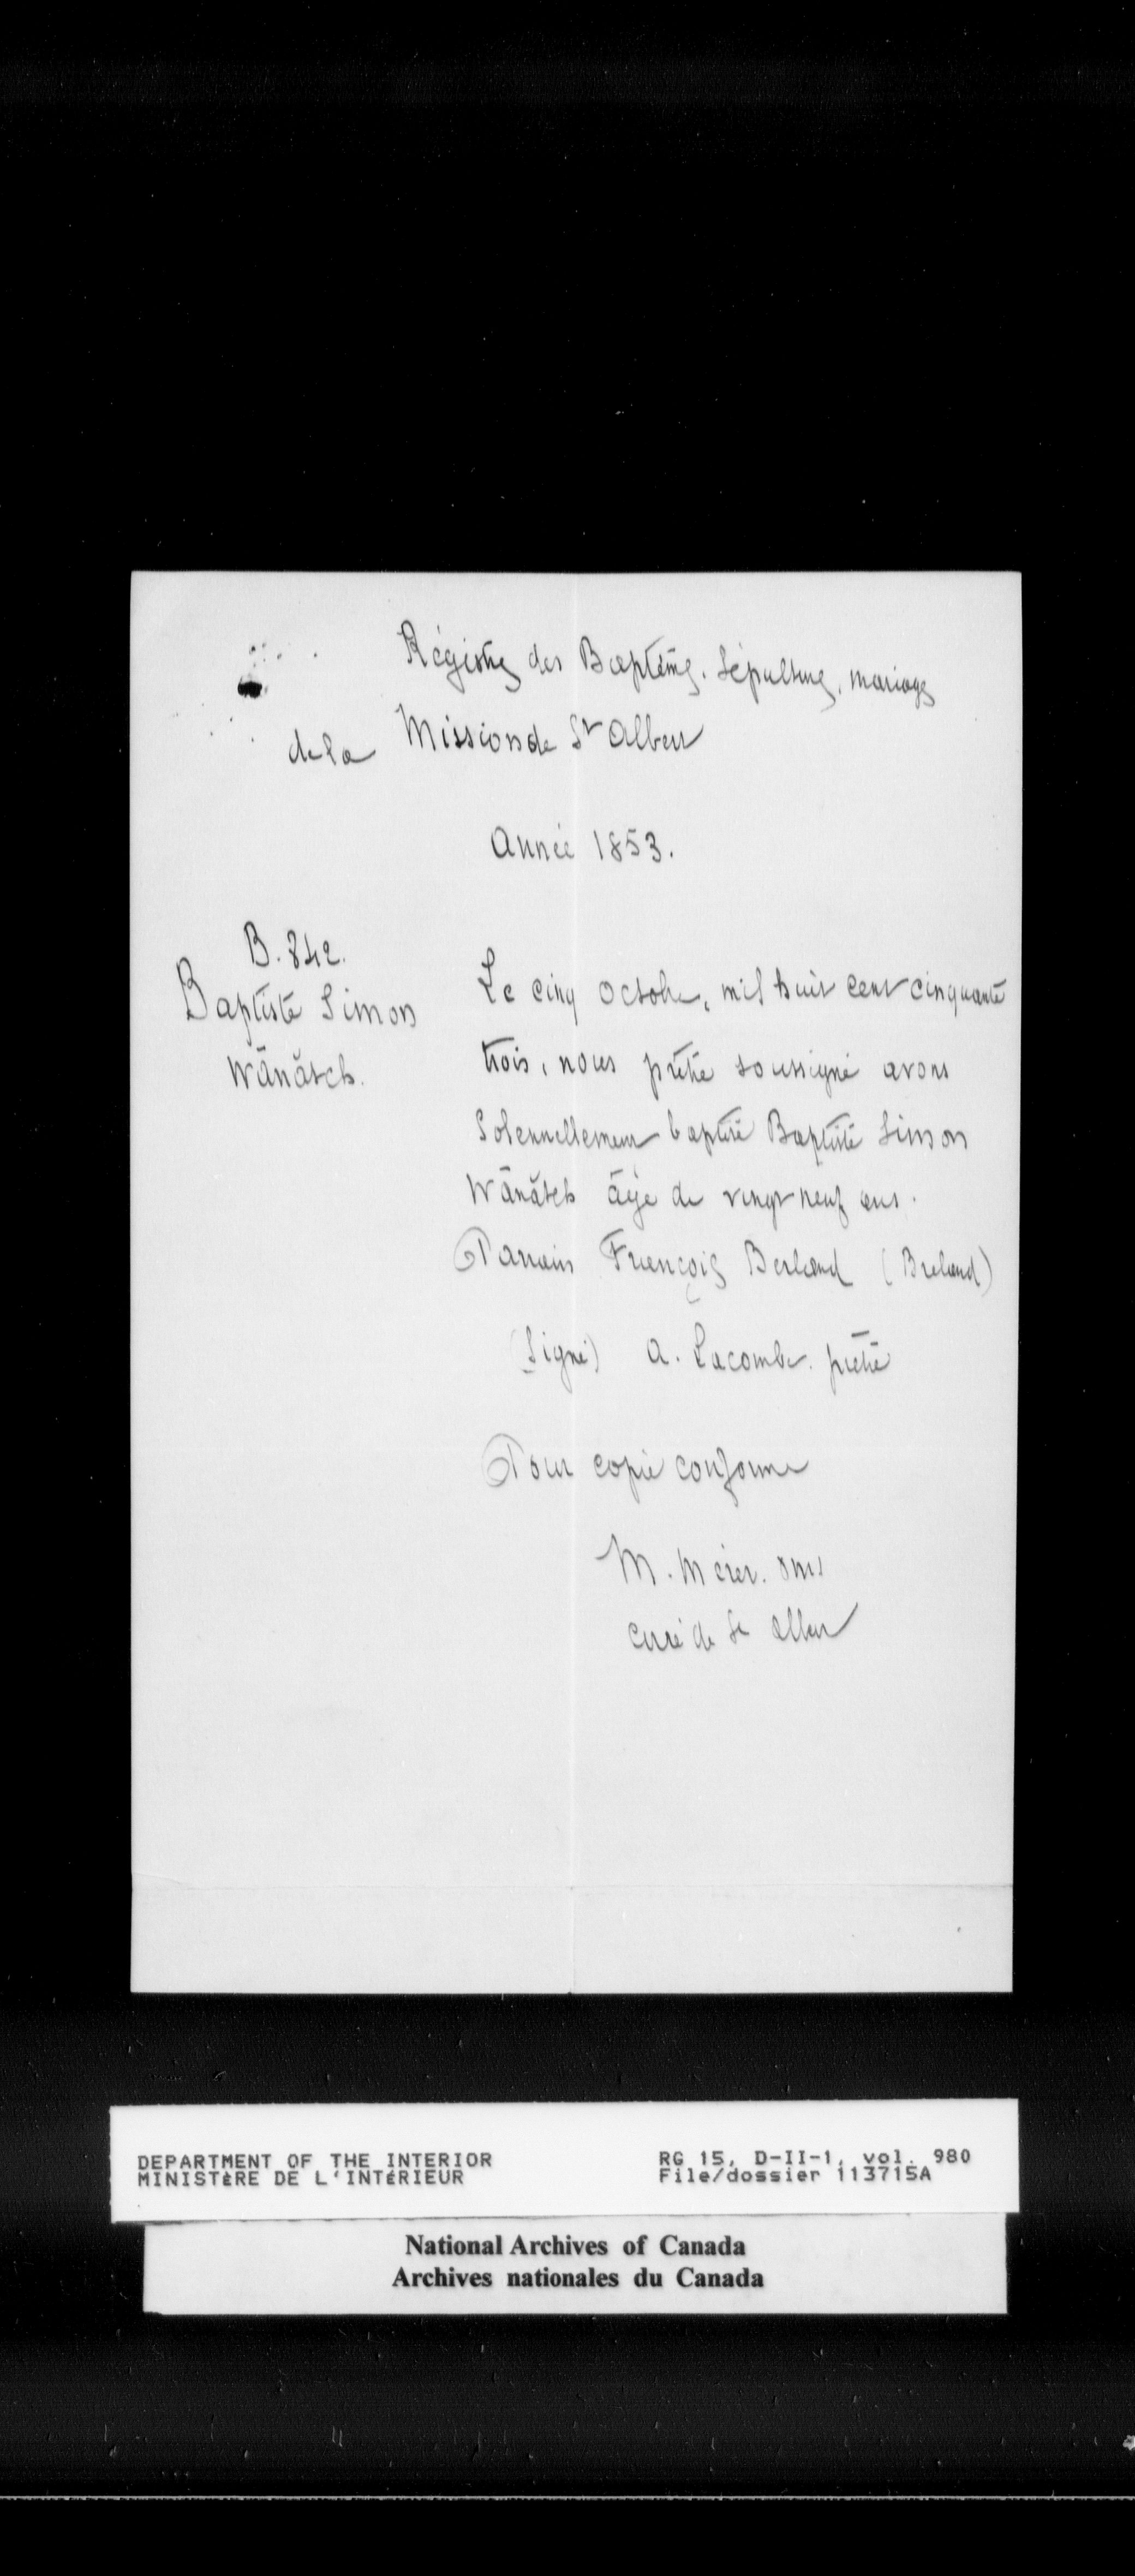 Régistres des Baptêmes. Sépultures, mariages
de la Mission de St Albert
Année 1853.
B. 842.
Baptiste Simon
Wānătch.
Le cinq octobre, mil huit cent cinquante
trois, nous prêtre soussigné avons
solennellement baptisé Baptiste Simon
Wānătch âgé de vingt neuf ans.
Parrain François Berland (Breland)
(Signé) A. Lacombe. prêtre
Pour copie conforme
M. Mérer. omi
curé de St Albert
DEPARTMENT OF THE INTERIOR
MINISTÈRE DE L'INTÉRIEUR
RG 15, D-II-1, vol. 980
File/dossier 113715A
National Archives of Canada
Archives nationales du Canada